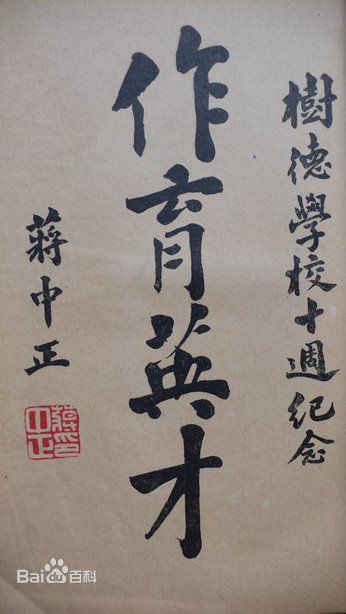 樹德學校十週紀念
作育英才
蔣中正
蔣中正印
Bai百科